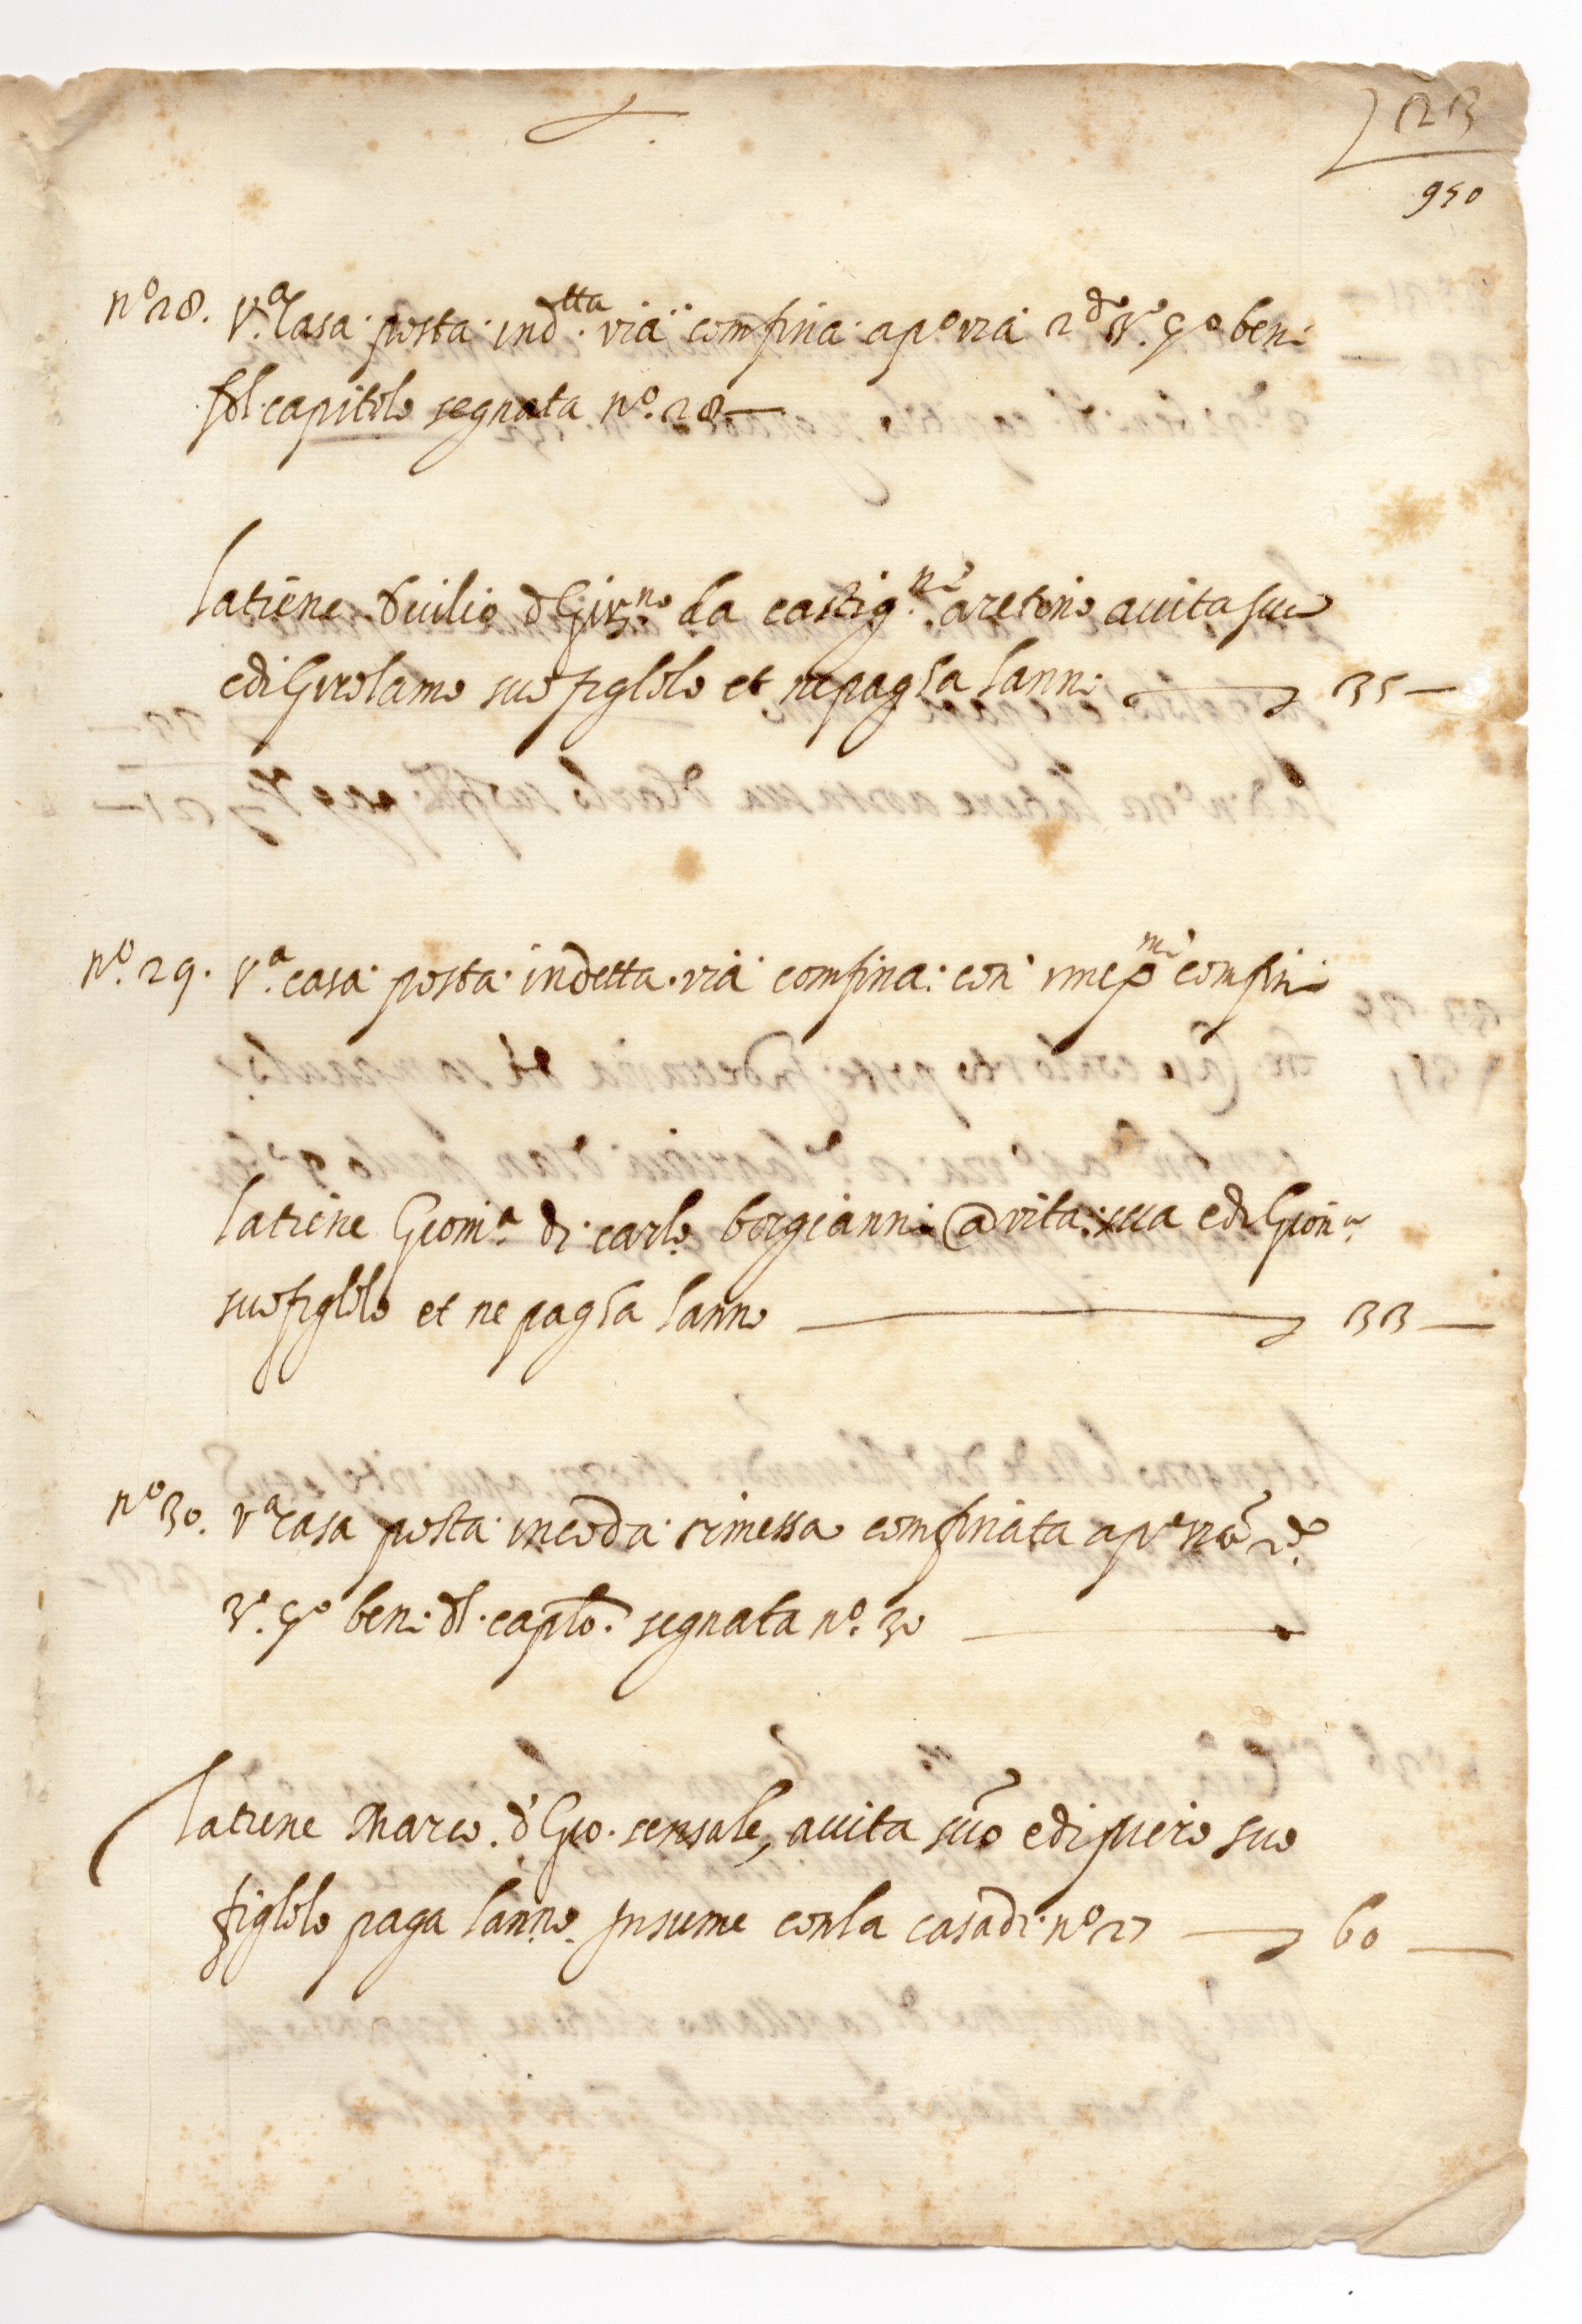 123
950
nº 28. Vª Casa posta in dtta via confina a pº via 2º 3º 4º beni
del capitolo segnata nº. 28
La tiene Duilio di Girmo da castigne aretino a uita sua
e di Girolamo suo figlolo et ne paga lanno 35 —
nº. 29. Vª casa posta in detta via confina con i mepmi confini
La tiene Giomª di carlo borgianni a vita sua e di Gionª
suo figlolo et ne paga lanno 33 —
nº 30. Vª casa posta in coda rimessa confinata a pº via 2º
3º. 4º beni del caplo. segnata nº. 30
La tiene Marco. di Gio. sensale, a uita suo e di piero suo
figlolo paga lanno. Insieme con la casa di nº 27 60 —